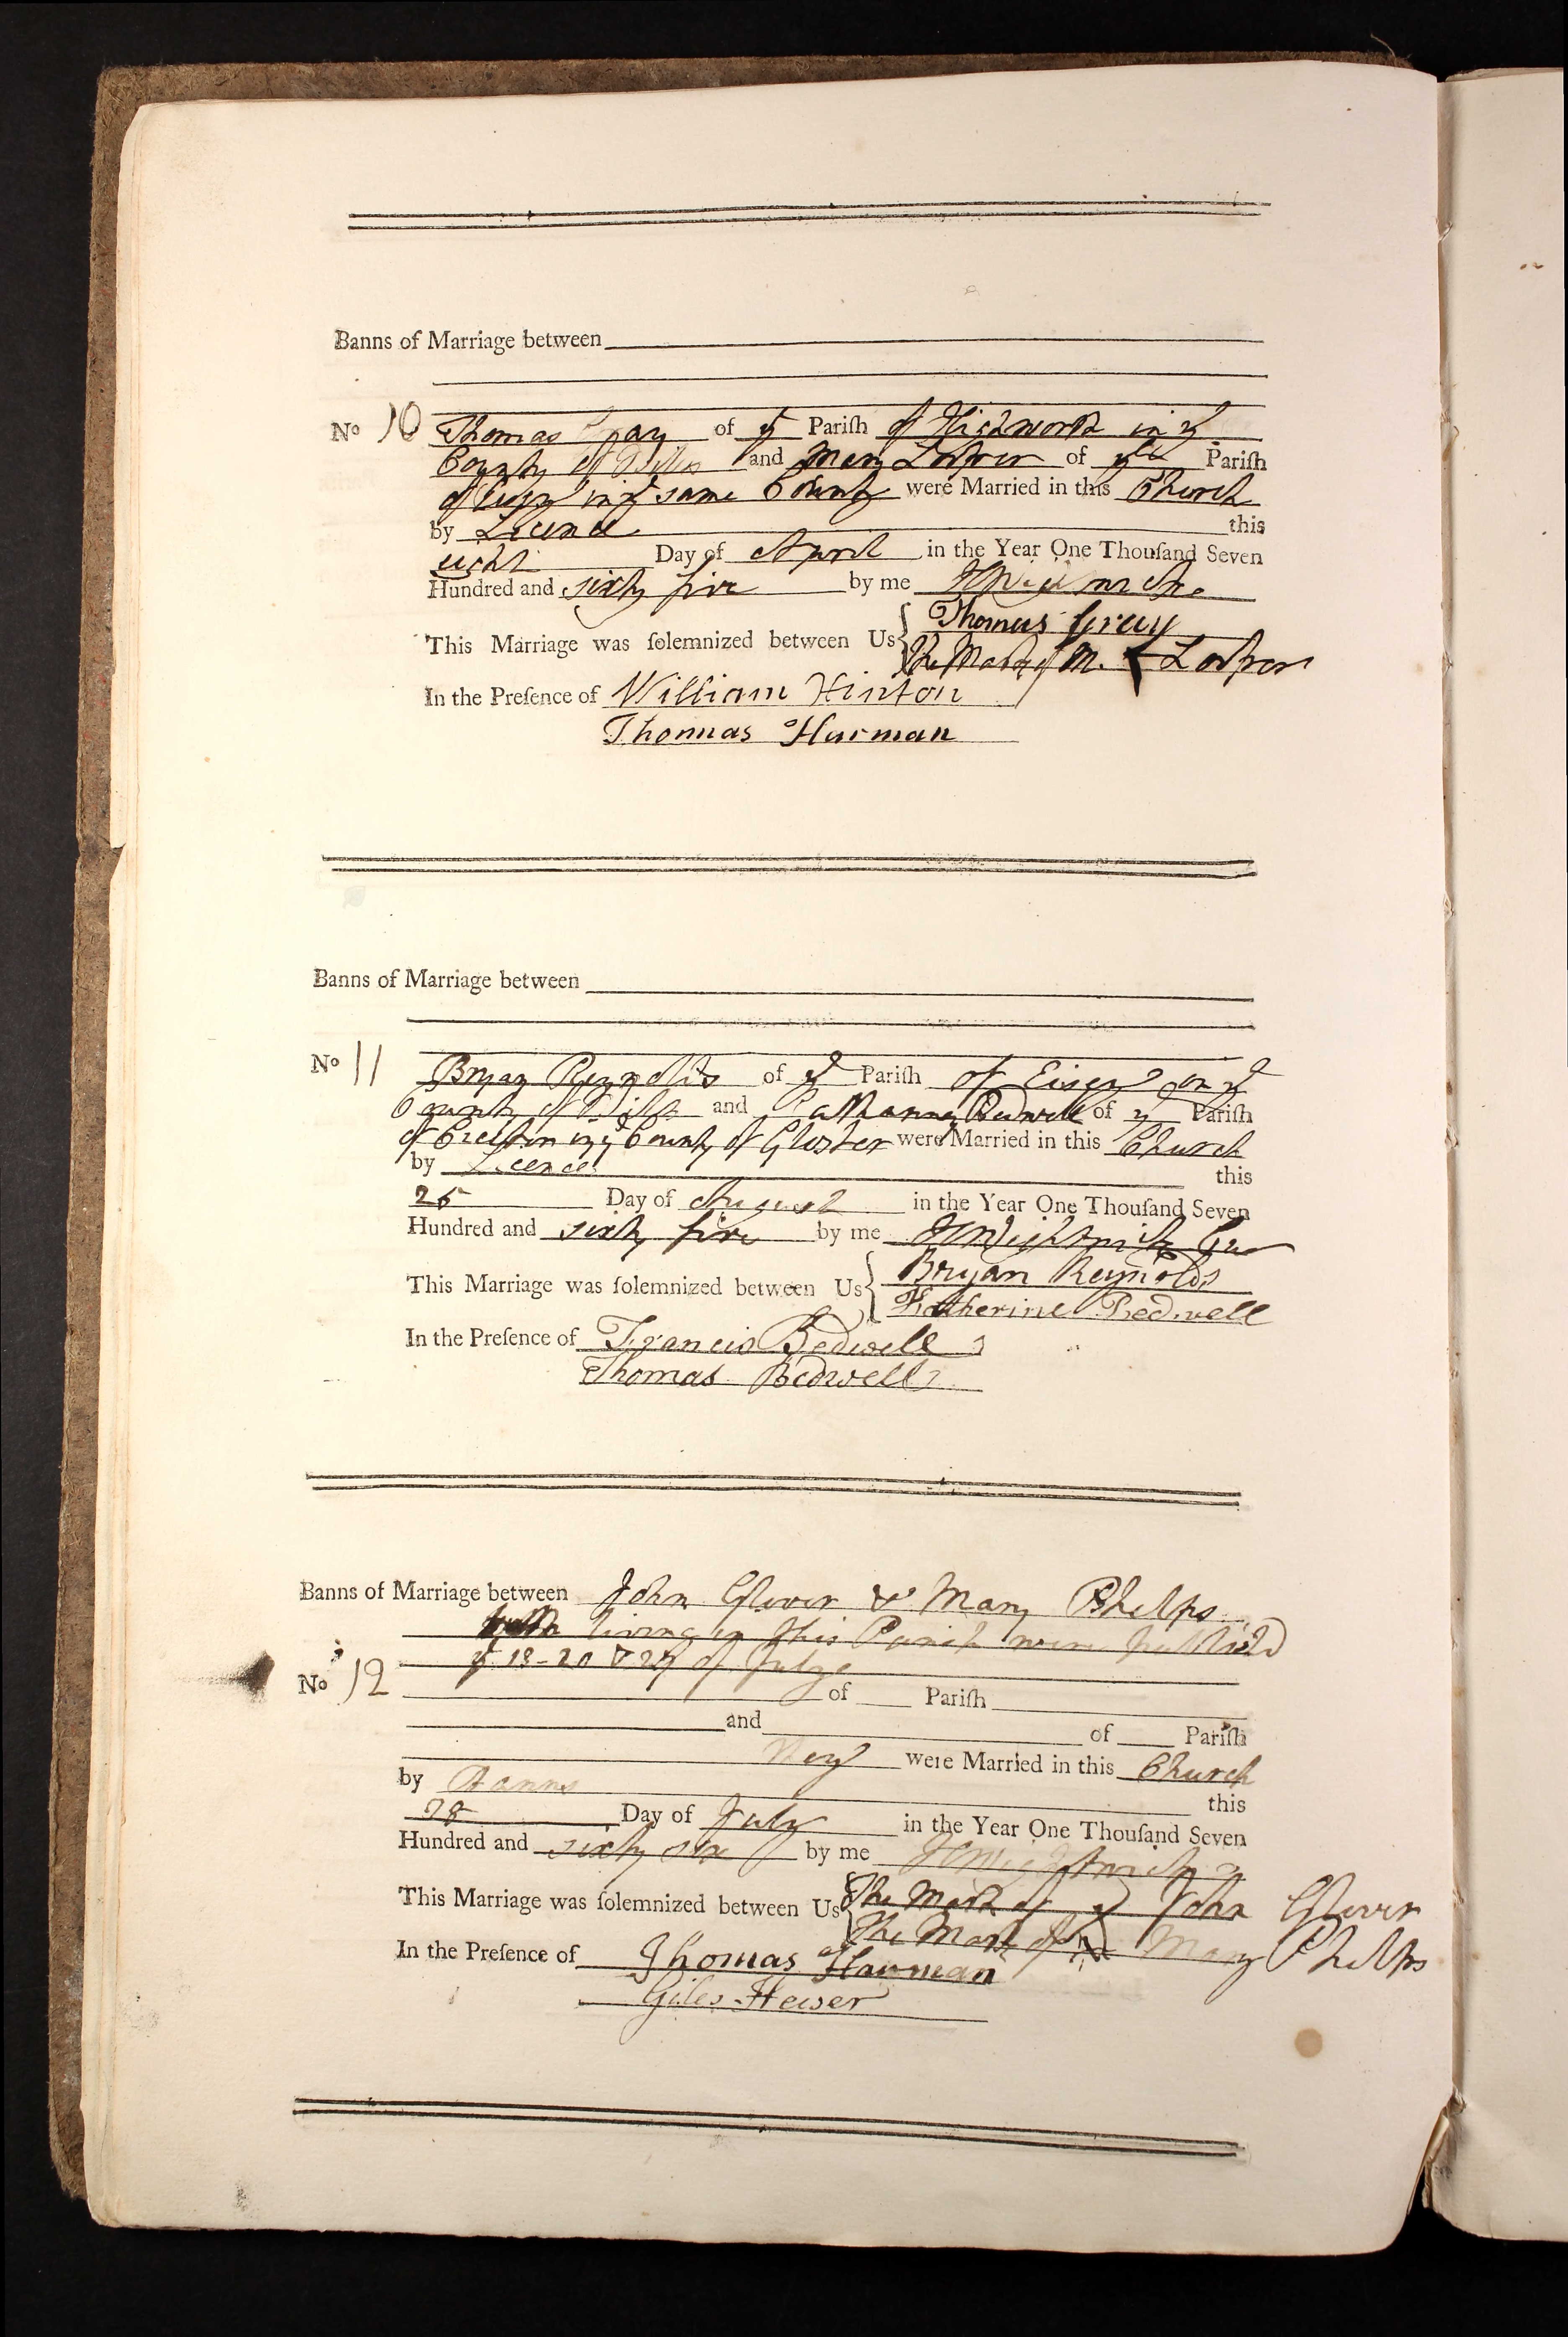 Banns of Marriage between
No 10 Thomas Gray of ye Pariſh of Highworth in ye
County of Wilts and Mary of ye Pariſh
of in ye same County were Married in this Church
by Licence this
eight Day of April in the Year One Thouſand Seven
Hundred and sixty five by me
This Marriage was ſolemnized between Us Thomas Gray
The Mark of M.
In the Preſence of William Hinton
Thomas Harman
Banns of Marriage between
No 11 Bryan Reynolds of ye Pariſh of Eisey in ye
County of Wilts and Bedwell of ye Pariſh
of in ye County of Gloster were Married in this Church
by Licence this
25 Day of August in the Year One Thouſand Seven
Hundred and sixty five by me H Wightwick Cu
This Marriage was ſolemnized between Us Bryan Reynolds
Katherine Bedwell
In the Preſence of Francis Bedwell
Thomas Bedwell
Banns of Marriage between John Glover & Mary Phelps
both living in this Parish were published
ye 13 - 20 & 27 of July
No 12 of Pariſh
and of Pariſh
they were Married in this Church
by Banns this
28 Day of July in the Year One Thouſand Seven
Hundred and sixty six by me H Wightwick
This Marriage was ſolemnized between Us The Mark of John Glover
The Mark of Mary Phelps
In the Preſence of Thomas Harman
Giles Hewer